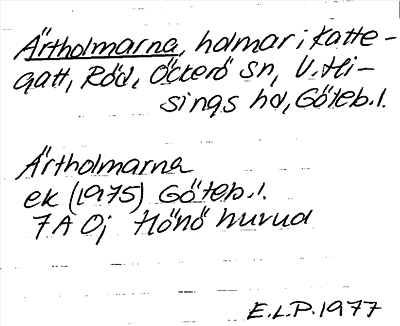 Ärtholmarna, holmar i Katte-
gatt, Röd, Öckerö sn, V. Hi-
sings hd, Göteb. l.
Ärtholmarna
ek (1975) Göteb. l.
7A 0j Hönö huvud
E.L.P. 1977